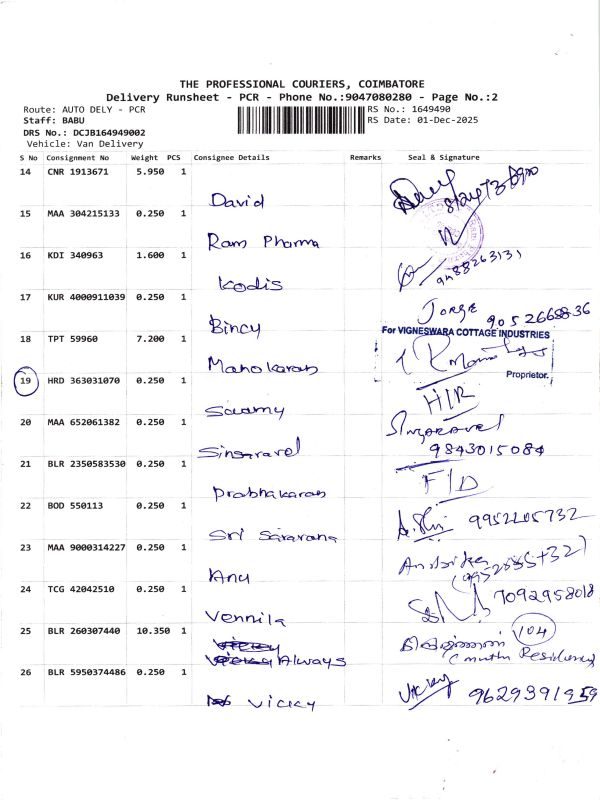 THE PROFESSIONAL COURIERS, COIMBATORE
Delivery Runsheet - PCR - Phone No.:9047080280 - Page No.:2
Route: AUTO DELY - PCR RS No.: 1649490
Staff: BABU RS Date: 01-Dec-2025
DRS No.: DCJB164949002
Vehicle: Van Delivery
S No Consignment No Weight PCS Consignee Details Remarks Seal & Signature
14 CNR 1913671 5.950 1
David
15 MAA 304215133 0.250 1
Ram Pharma
16 KDI 340963 1.600 1
Kodis 9488263131
17 KUR 4000911039 0.250 1
Bincy Jorge 9052668836
For VIGNESWARA COTTAGE INDUSTRIES
18 TPT 59960 7.200 1
Manokaran
Proprietor.
19 HRD 363031070 0.250 1
Swamy H/R
20 MAA 652061382 0.250 1
Singaravel 9843015084
21 BLR 2350583530 0.250 1
Prabhakaran F/D
22 BOD 550113 0.250 1
Sri Saravana 9952205732
23 MAA 9000314227 0.250 1
Anu
24 TCG 42042510 0.250 1
Vennila 7092958018
25 BLR 260307440 10.350 1 104
Vicky
Vicky Always (Muthu Residency
26 BLR 5950374486 0.250 1
Vicky Vicky 9629391959